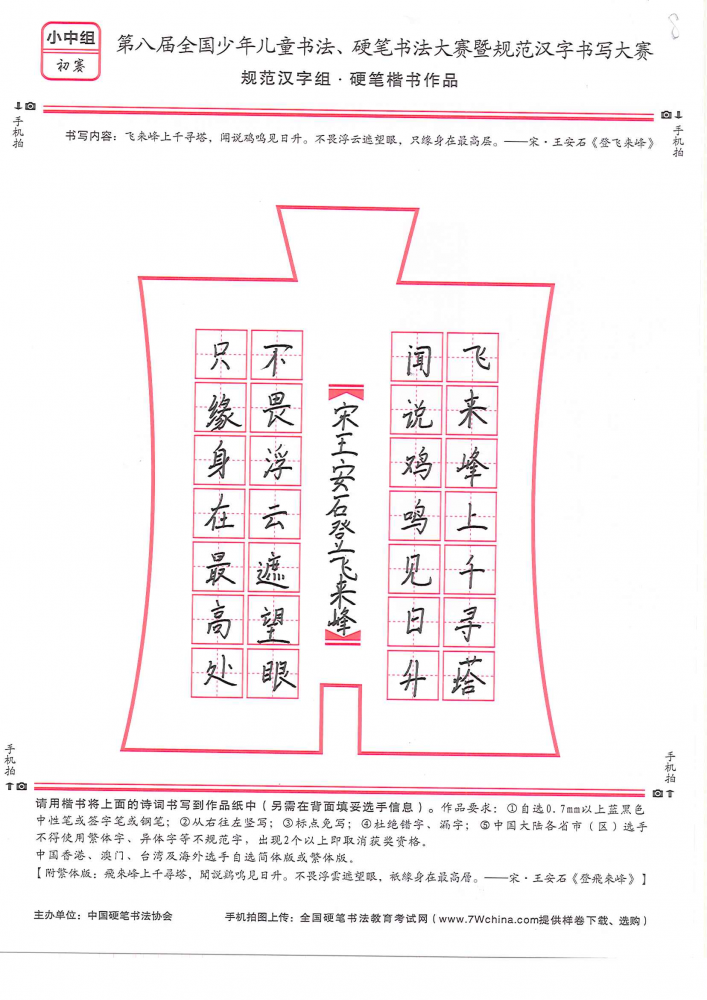 小中组
初赛
8
第八届全国少年儿童书法、硬笔书法大赛暨规范汉字书写大赛
规范汉字组·硬笔楷书作品
手机拍
手机拍
书写内容：飞来峰上千寻塔，闻说鸡鸣见日升。不畏浮云遮望眼，只缘身在最高层。——宋·王安石《登飞来峰》
飞来峰上千寻塔
闻说鸡鸣见日升
宋王安石登飞来峰
不畏浮云遮望眼
只缘身在最高处
手机拍
手机拍
请用楷书将上面的诗词书写到作品纸中（另需在背面填妥选手信息）。作品要求：①自选0.7mm以上蓝黑色
中性笔或签字笔或钢笔；②从右往左竖写；③标点免写；④杜绝错字、漏字；⑤中国大陆各省市（区）选手
不得使用繁体字、异体字等不规范字，出现2个以上即取消获奖资格。
中国香港、澳门、台湾及海外选手自选简体版或繁体版。
【附繁体版：飛來峰上千尋塔，聞說鷄鳴見日升。不畏浮雲遮望眼，衹緣身在最高層。——宋·王安石《登飛來峰》】
主办单位：中国硬笔书法协会
手机拍图上传：全国硬笔书法教育考试网（www.7Wchina.com提供样卷下载、选购）